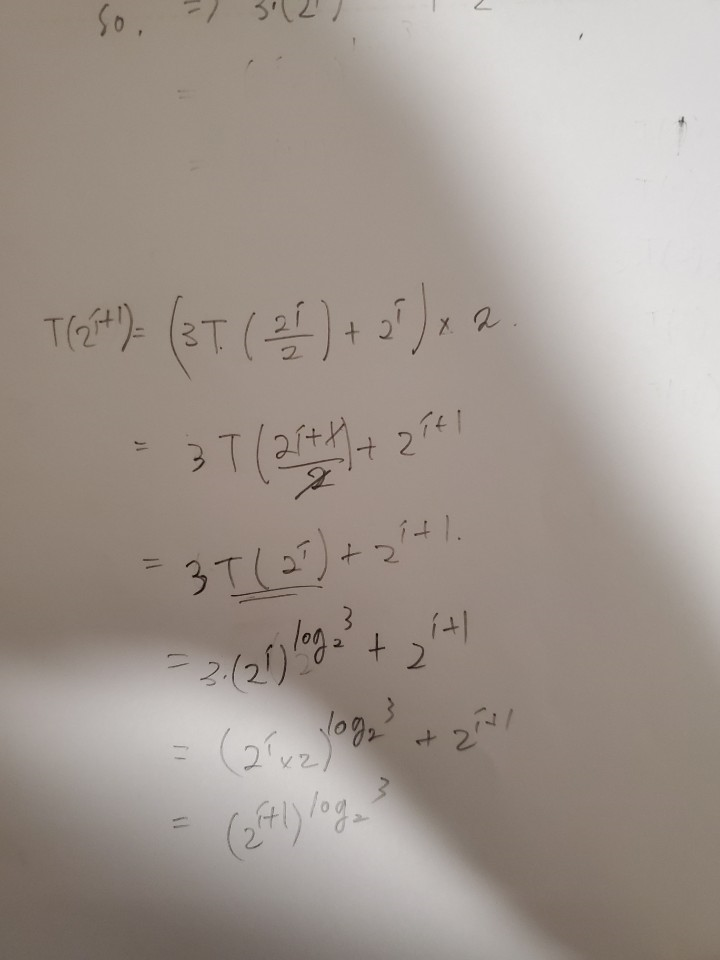 So, => 3·(2
=
=
T(2^{i+1}) = (3T. (2^i/2) + 2^i) × 2.
= 3T(2^{i+1}/2) + 2^{i+1}
= 3T(2^i) + 2^{i+1}.
= 3·(2^i)^{log_2 3} + 2^{i+1}
= (2^i × 2)^{log_2 3} + 2^{i+1}
= (2^{i+1})^{log_2 3}